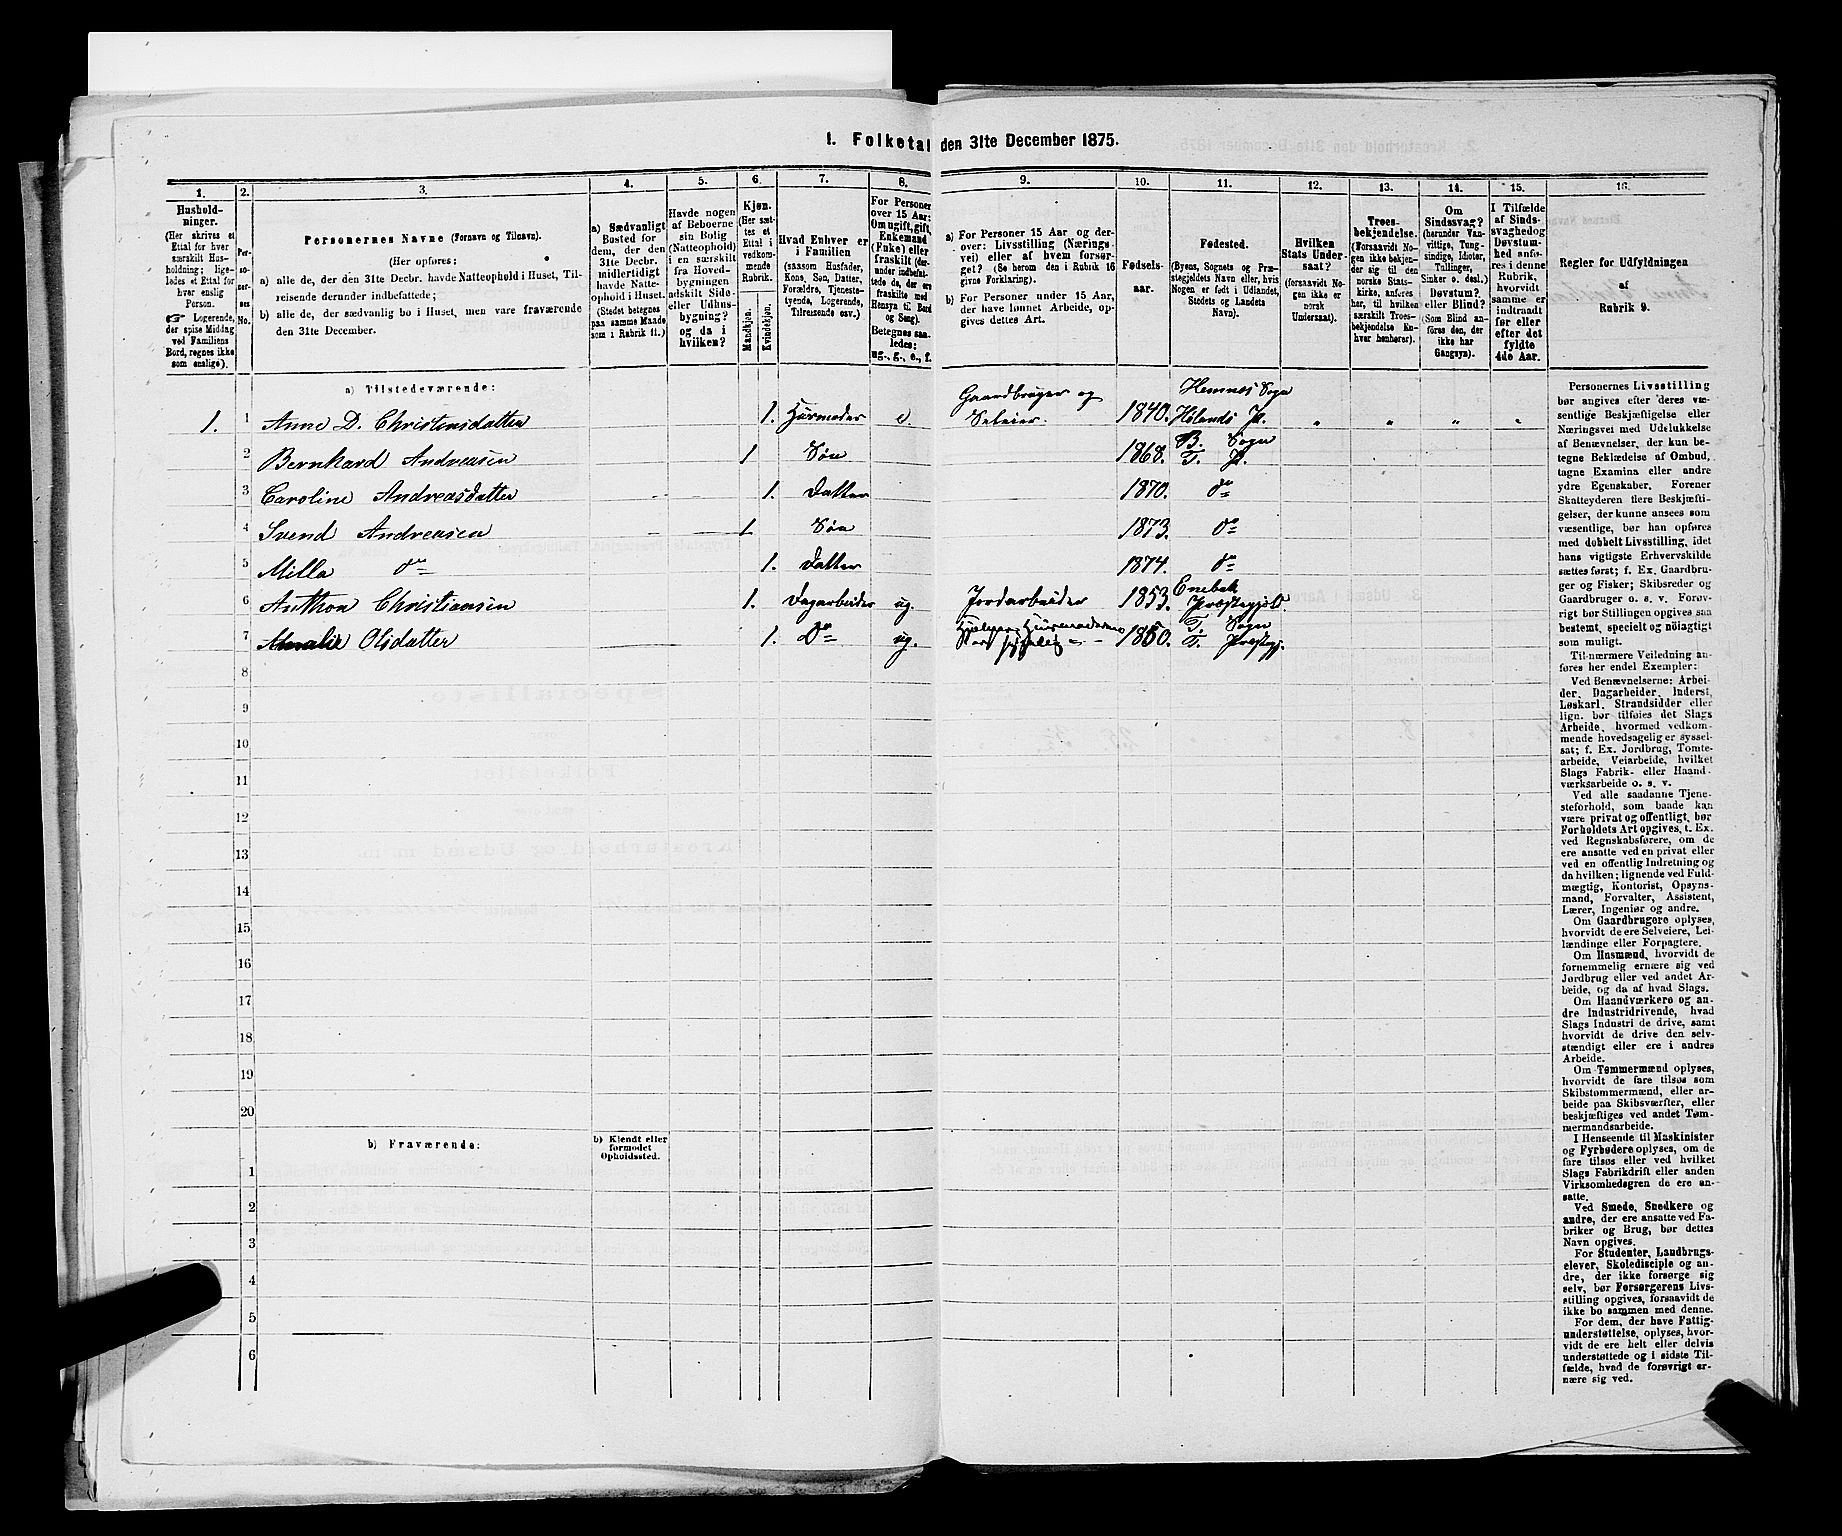 1. Folketal den 31te December 1875.
1. 2. 3. 4. 5. 6. 7. 8. 9. 10. 11. 12. 13. 14. 15. 16.
Husholdninger.
(Her skrives et
Ettal for hver
særskilt Husholdning; ligeledes
et Ettal for
hver enslig
Person.
☞ Logerende,
der spise Middag
ved Familiens
Bord, regnes ikke
som enslige).
Personernes No.
Personernes Navne (Fornavn og Tilnavn).
(Her opføres:
a) alle de, der den 31te Decbr. havde Natteophold i Huset, Tilreisende derunder indbefattede;
b) alle de, der sædvanlig bo i Huset, men vare fraværende
den 31te December.
a) Sædvanligt
Bosted for
dem, der den
31te Decbr.
midlertidigt
havde Natteophold i Huset.
(Stedet betegnes
paa samme Maade
som i Rubrik 11.)
Havde nogen
af Beboerne
sin Bolig
(Natteophold)
i en særskilt
fra Hovedbygningen
adskilt Side- eller Udhusbygning?
og da i
hvilken?
Kjøn.
(Her sættes et
Ettal i
vedkommende
Rubrik.
Mandkjøn.
Kvindekjøn.
Hvad Enhver er
i Familien
(saasom Husfader,
Kone, Søn, Datter,
Forældre, Tjenestetyende, Logerende,
Tilreisende osv.)
For Personer
over 15 Aar:
Om ugift, gift,
Enkemand
(Enke) eller
fraskilt (derunder indbefattede de, der ere
fraskilte med
Hensyn til Bord
og Seng).
Betegnes saaledes:
ug., g., e., f.
a) For Personer 15 Aar og derover: Livsstilling (Næringsvei) eller af hvem forsørget? (Se herom den i Rubrik 16
givne Forklaring).
b) For Personer under 15 Aar,
der have lønnet Arbeide, opgives dettes Art.
Fødselsaar.
Fødested.
(Byens, Sognets og Præstegjeldets Navn eller, hvis
Nogen er født i Udlandet,
Stedets og Landets
Navn).
Hvilken
Stats Undersaat?
(forsaavidt Nogen ikke er
norsk
Undersaat).
Troesbekjendelse.
(Forsaavidt Nogen ikke bekjender sig til den
norske Statskirke, anføres
her, til hvilken
særskilt Troesbekjendelse Enhver henhører).
Om
Sindssvag?
(herunder Vanvittige, Tungsindige, Idioter,
Tullinger,
Sinker o. desl.)
Døvstum?
eller Blind?
(Som Blind anføres den, der
ikke har
Gangsyn).
I Tilfælde
af Sindssvaghed og
Døvstumhed anføres i denne
Rubrik,
hvorvidt
samme er
indtraadt
før eller
efter det
fyldte
4de Aar.
Regler for Udfyldningen
af
Rubrik 9.
a) Tilstedeværende:
1. 1 Anne D. Christensdatter 1. Husmoder e. Gaardbruger og Selveier. 1840. Hemnes Sogn Hølands Pr. " " " "
2 Bernhard Andreasen 1 Søn 1868. B. Sogn T. Pr.
3 Caroline Andreasdatter 1. Datter 1870. do
4 Svend Andreasen 1 Søn 1873. do
5 Milla do 1. Datter 1874. do
6 Anthon Christiansen 1. Dagarbeider ug. Jordarbeider 1853. Enebak Præstegjeld
7 Amalie Olsdatter 1. Do ug. Hjelper Husmoderen 1850. T. Sogn T. Præstegj.
8
9
10
11
12
13
14
15
16
17
18
19
20
b) Fraværende:
b) Kjendt eller
formodet
Opholdssted.
1
2
3
4
5
6
Personernes Livsstilling
bør angives efter deres væsentlige Beskjæftigelse eller
Næringsvei med Udelukkelse
af Benævnelser, der kun betegne Beklædelse af Ombud,
tagne Examina eller andre
ydre Egenskaber. Forener
Skatteyderen flere Beskjæftigelser, der kunne ansees som
væsentlige, bør han opføres
med dobbelt Livsstilling, idet
hans vigtigste Erhvervskilde
sættes først; f. Ex. Gaardbruger og Fisker; Skibsreder og
Gaardbruger o. s. v. Forøvrigt bør Stillingen opgives saa
bestemt, specielt og nöiagtigt
som muligt.
Til nærmere Veiledning anføres her endel Exempler:
Ved Benævnelserne: Arbeider, Dagarbeider, Inderst,
Løskarl, Strandsidder eller
lign. bør tilføies det Slags
Arbeide, hvormed vedkommende hovedsagelig er sysselsat; f. Ex. Jordbrug, Tomtearbeide, Veiarbeide, hvilket
Slags Fabrik- eller Haandværksarbeide o. s. v.
Ved alle saadanne Tjenesteforhold, som baade kan
være privat og offentligt, bør
Forholdets Art opgives, t. Ex.
ved Regnskabsførere, om de
ere ansatte ved en privat eller
ved en offentlig Indretning og
da hvilken; lignende ved Fuldmægtig, Kontorist, Opsynsmand, Forvalter, Assistent,
Lærer, Ingeniør og andre.
Om Gaardbrugere oplyses,
hvorvidt de ere Selveiere, Leilændinge eller Forpagtere.
Om Husmænd, hvorvidt de
fornemmelig ernære sig ved
Jordbrug eller ved andet Arbeide, og da af hvad Slags.
Om Haandværkere og andre Industridrivende, hvad
Slags Industri de drive, samt
hvorvidt de drive den selvstændigt eller ere i andres
Arbeide.
Om Tømmermænd oplyses,
hvorvidt de fare tilsøs som
Skibstømmermænd, eller arbeide paa Skibsværfter, eller
beskjæftiges ved andet Tømmermandsarbeide.
I Henseende til Maskinister
og Fyrbødere oplyses, om de
fare tilsøs eller ved hvilket
Slags Fabrikdrift eller anden
Virksomhedsgren de ere ansatte.
Ved Smede, Snedkere og
andre, der ere ansatte ved Fabriker og Brug, bør dettes
Navn opgives.
For Studenter, Landbrugselever, Skoledisciple og andre, der ikke forsørge sig
selv, bør Forsørgerens Livsstilling opgives, forsaavidt de
ikke bo sammen med denne.
For dem, der have Fattigunderstøttelse, oplyses, hvorvidt de ere helt eller delvis
understøttede og i sidste Tilfælde, hvad de forøvrigt ernære sig ved.